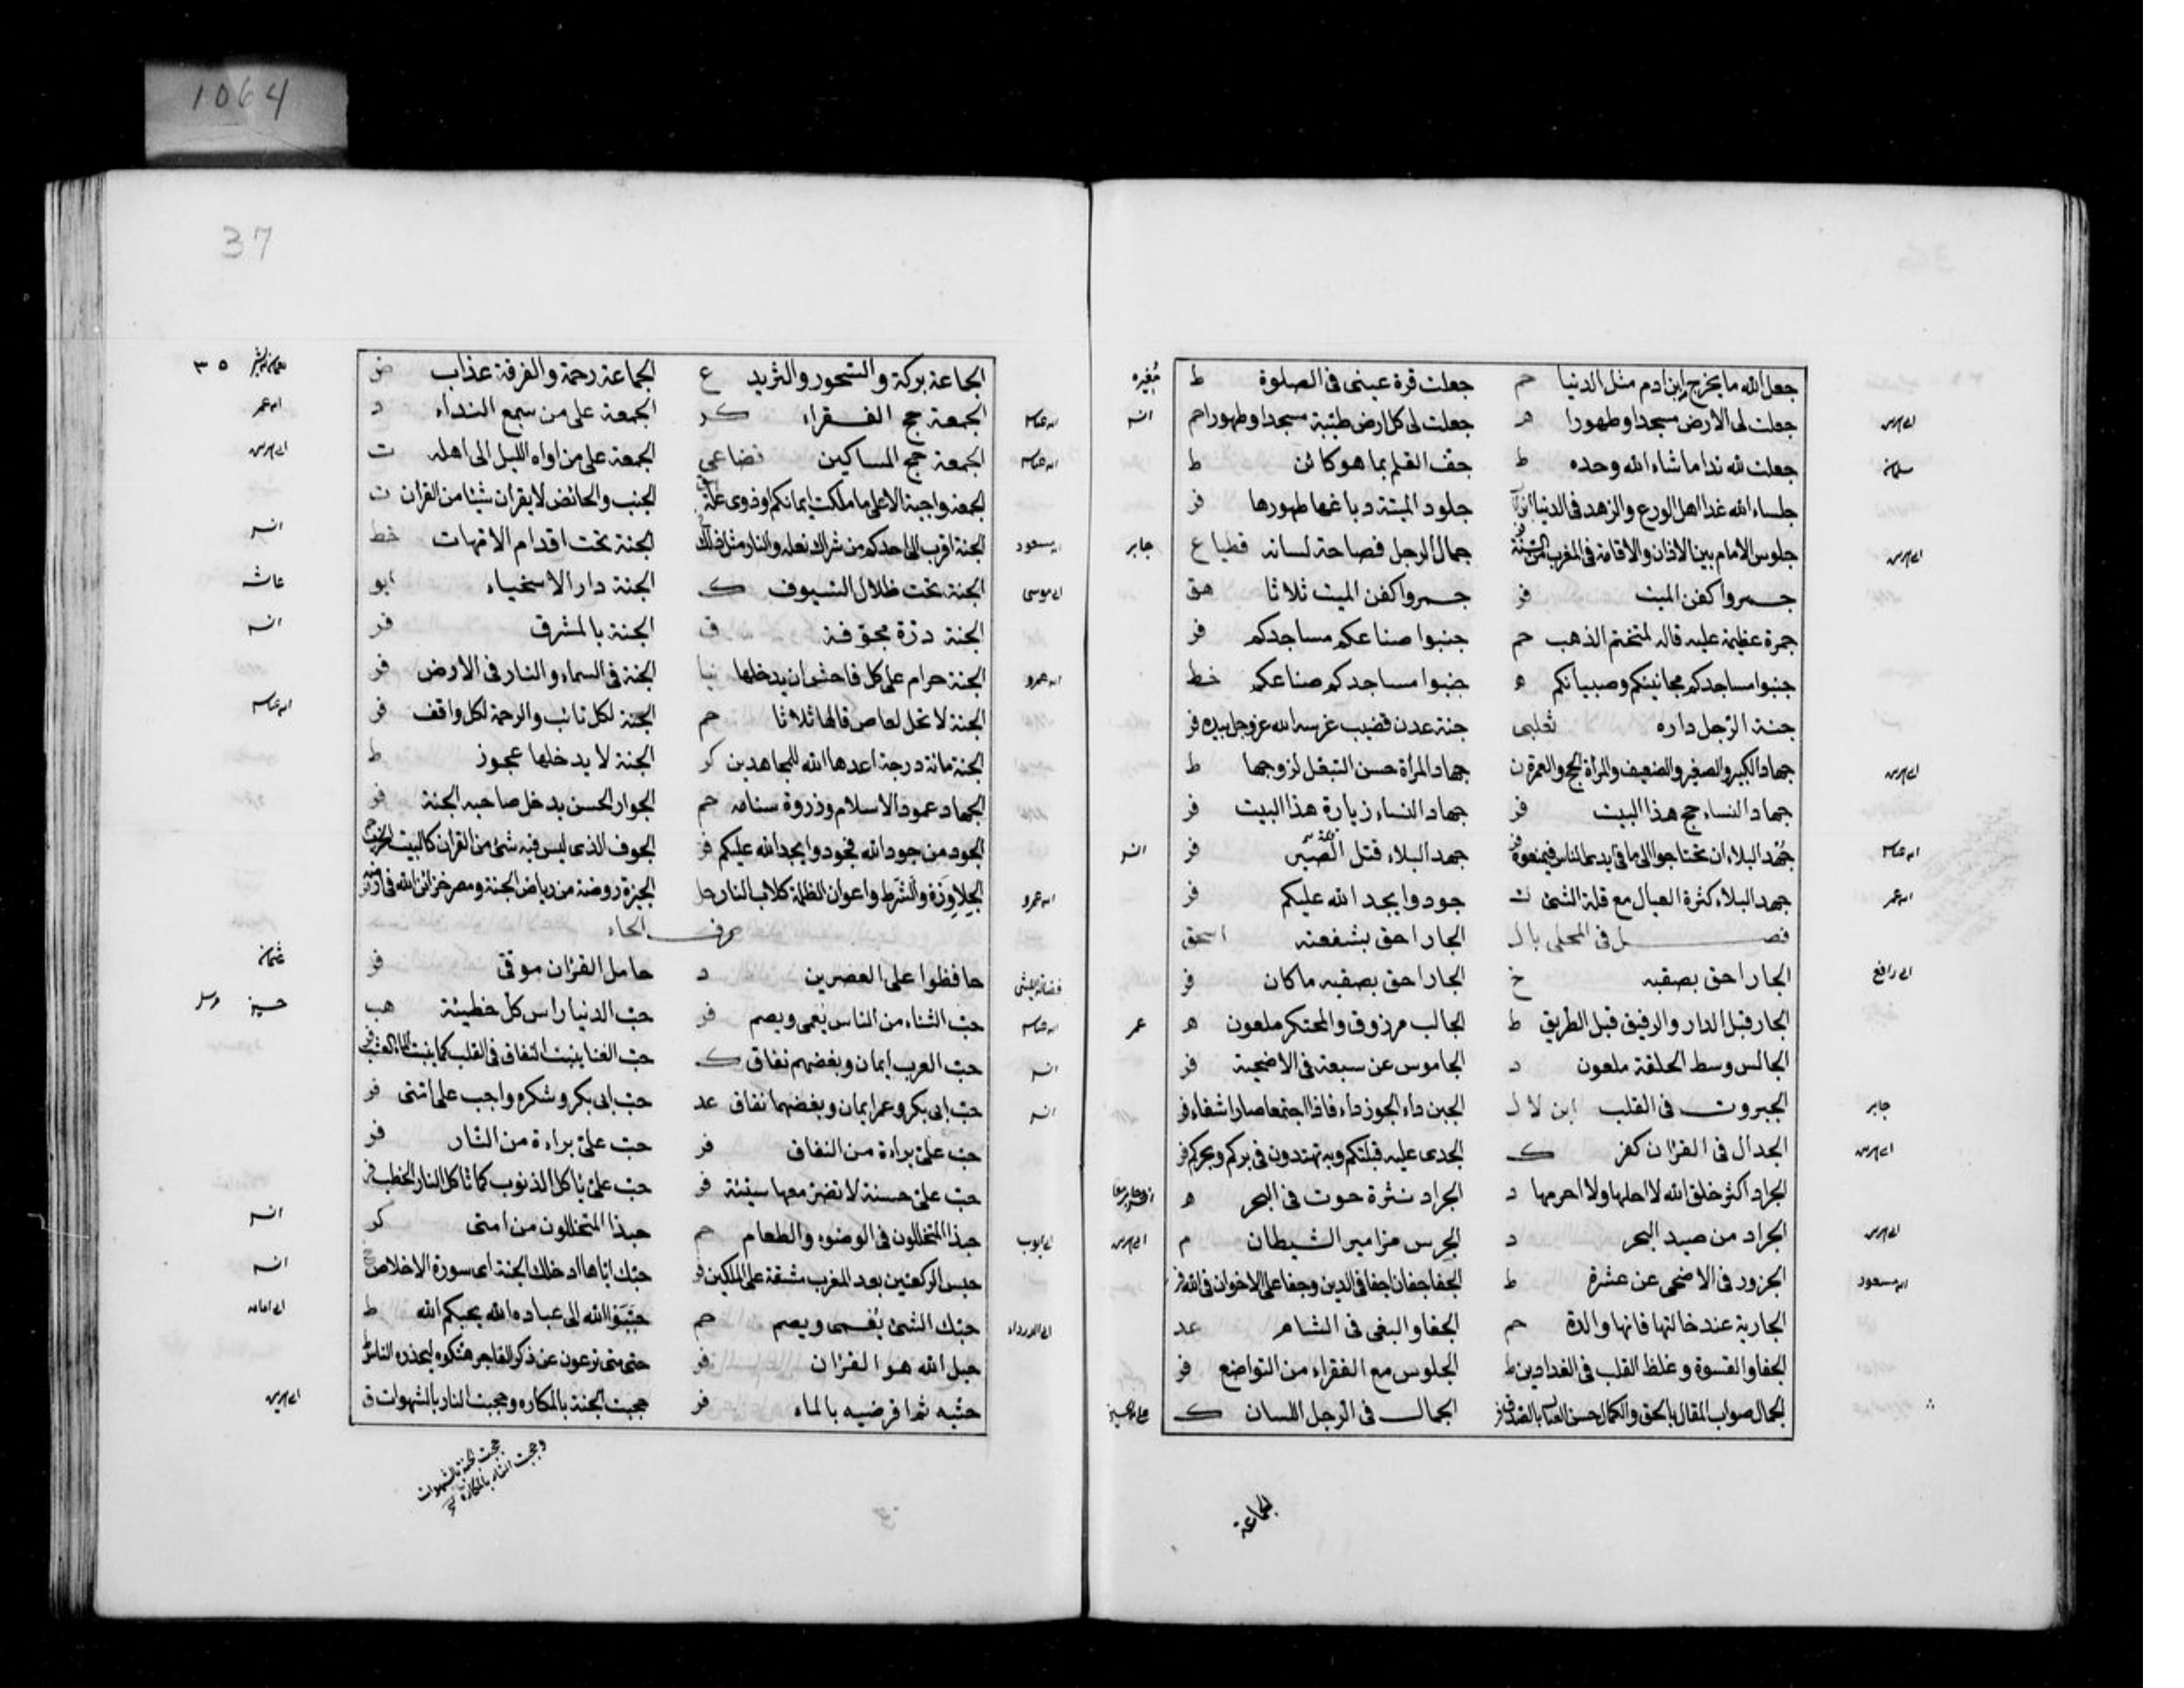 1064
37
جعل الله ما يخرج ابن ادم مثل الدنيا حم جعلت قرة عينى فى الصلوة ط مغيره
جعلت لى الارض مسجدا وطهورا ه جعلت لى كل ارض طيبة مسجدا وطهورا حم
جعلت لله ندا ما شاء الله وحده ط جف القلم بما هو كائن ط
جلساء الله غدا اهل الورع والزهد فى الدنيا جلود الميتة دباغها طهورها فر
جلوس الامام بين الاذان والاقامة فى المغرب من السنة جمال الرجل فصاحة لسانه جابر
جمروا كفن الميت فر جمروا كفن الميت ثلاثا هق
جمرة عظيمة عليه قاله لمتختم الذهب حم جنبوا صناعكم مساجدكم فر
جنبوا مساجدكم مجانينكم وصبيانكم ه جنبوا مساجدكم صناعكم خط
جنة الرجل داره ثعلبى جنة عدن قضيب غرسه الله عز وجل بيده فر
جهاد الكبير والصغير والضعيف والمراة الحج والعمرة ن جهاد المراة حسن التبعل لزوجها ط
جهاد النساء حج هذا البيت فر جهاد النساء زيارة هذا البيت فر
جهد البلاء ان تحتاجوا الى ما فى ايدى الناس فيمنعوه فر جهد البلاء قتل الصبر فر
ابن عمر جهد البلاء كثرة العيال مع قلة الشئ جودوا يجد الله عليكم فر
فصل فى المحلى بال الجار احق بشفعته اسحق
ابى رافع الجار احق بصقبه خ الجار احق بصقبه ما كان فر
الجار قبل الدار والرفيق قبل الطريق ط الجالب مرزوق والمحتكر ملعون ه عمر
الجالس وسط الحلقة ملعون د الجاموس عن سبعة فى الاضحية فر
جابر الجبروت فى القلب ابن لال الجبن داء والجوز داء فاذا اجتمعا صارا شفاء فر
الجدال فى القران كفر ك الجدى عليه قبلتكم وبه تهتدون فى بركم وبحركم فر
الجراد اكثر خلق الله لا احلها ولا احرمها د الجراد نثرة حوت فى البحر ه
الجراد من صيد البحر د الجرس مزامير الشيطان م
ابن مسعود الجزور فى الاضحى عن عشرة ط الجفا جفان جفا فى الدين وجفا على الاخوان فى الله فر
الجارية عند خالتها فانها والدة حم الجفا والبغى فى الشام عد
الجفا والقسوة وغلظ القلب فى الفدادين ط الجلوس مع الفقراء من التواضع فر
الجمال صواب المقال بالحق والكمال حسن الجمال فى الرجل اللسان ك
الجماعة
الجماعة بركة والسحور والثريد ع الجماعة رحمة والفرقة عذاب ض ٣٥
الجمعة حج الفقراء كر الجمعة على من سمع النداء د ابن عمر
الجمعة حج المساكين قضاعى الجمعة على من اواه الليل الى اهله ت
الجمعة واجبة الا على ما ملكت ايمانكم او ذوى علة الجنب والحائض لا يقران شيئا من القران ت
ابن مسعود الجنة اقرب الى احدكم من شراك نعله والنار مثل ذلك الجنة تحت اقدام الامهات خط
ابى موسى الجنة تحت ظلال السيوف ك الجنة دار الاسخياء ابو
الجنة درة مجوفة ق الجنة بالمشرق فر
ابن عمرو الجنة حرام على كل فاحش ان يدخلها نيا الجنة فى السماء والنار فى الارض فر
الجنة لا تحل لعاص قالها ثلاثا حم الجنة لكل تائب والرحمة لكل واقف فر
الجنة مائة درجة اعدها الله للمجاهدين كر الجنة لا يدخلها عجوز ط
الجهاد عمود الاسلام وذروة سنامه حم الجوار الحسن يدخل صاحبه الجنة فر
الجود من جود الله فجودوا يجد الله عليكم فر الجوف الذى ليس فيه شئ من القران كالبيت الخرب
ابن عمرو الجلاوزة والشرط واعوان الظلمة كلاب النار حل الجيزة روضة من رياض الجنة ومصر خزائن الله فى ارضه
حرف الحاء
حافظوا على العصرين د حامل القران موقى فر عثمان
حب الثناء من الناس يعمى ويصم فر حب الدنيا راس كل خطيئة هب
حب العرب ايمان وبغضهم نفاق ك حب الغنا ينبت النفاق فى القلب كما ينبت الماء العشب
حب ابى بكر وعمر ايمان وبغضهما نفاق عد حب ابى بكر وشكره واجب على امتى فر
حب على براءة من النفاق فر حب على براءة من النار فر
حب على حسنة لا تضر معها سيئة فر حب على ياكل الذنوب كما تاكل النار الحطب
ابى ايوب حبذا المتخللون فى الوضوء والطعام حم حبذا المتخللون من امتى كر
حبس الركعتين بعد المغرب مشقة على الملكين فر حبك اياها ادخلك الجنة اى سورة الاخلاص
ابى الدرداء حبك الشئ يعمى ويصم حم حببوا الله الى عباده الله يحبكم الله ط ابى امامه
حبل الله هو القران فر حتى متى ترعون عن ذكر الفاجر هتكوه ليحذره الناس ط
حتيه ثم اقرضيه بالماء فر حجبت الجنة بالمكاره وحجبت النار بالشهوات ق
حجبت الجنة بالشهوات
وحجبت النار بالمكاره